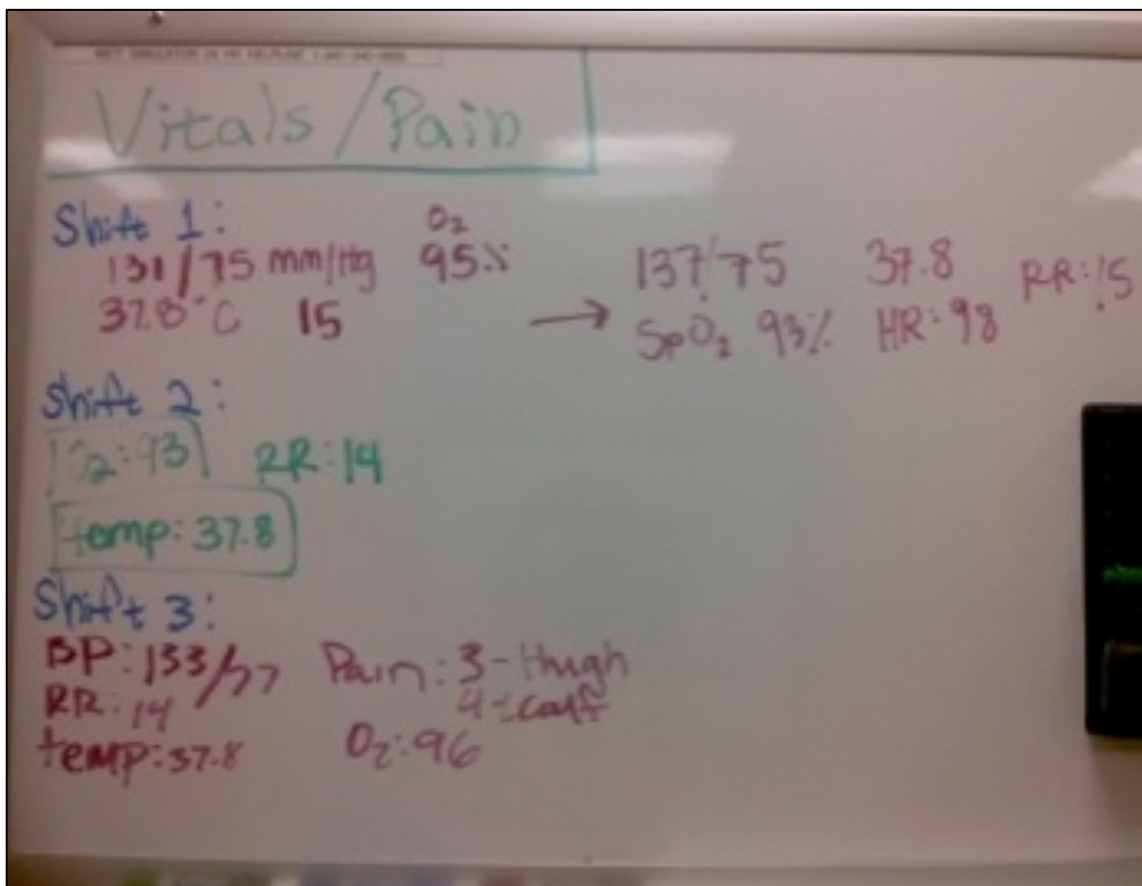 Vitals / Pain
Shift 1:
O2
131/75 mm/Hg 95%
37.8°C 15
→ 137/75 37.8 RR: 15
SpO2 93% HR: 98
Shift 2:
O2: 93 RR: 14
temp: 37.8
Shift 3:
BP: 133/77 Pain: 3 - thigh
RR: 14 4 - calf
temp: 37.8 O2: 96